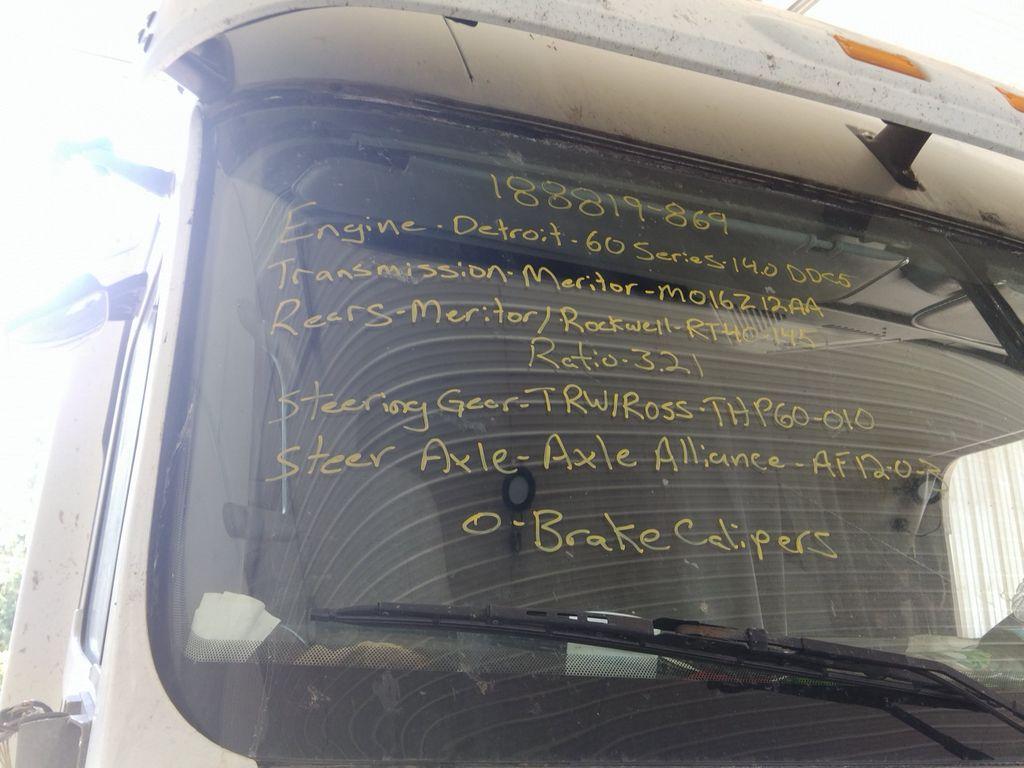 188819-869
Engine - Detroit - 60 Series - 14.0 DDC5
Transmission - Meritor - MO16Z12AA
Rears - Meritor/Rockwell - RT40-145
Ratio - 3.21
Steering Gear - TRW/Ross - THP60-010
Steer Axle - Axle Alliance - AF12.0-3
0 - Brake Calipers